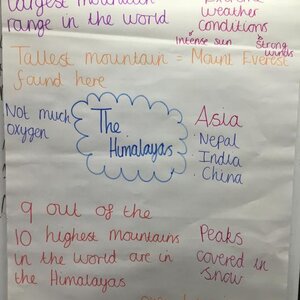 largest mountain
range in the world
weather
conditions
intense sun
strong
winds
Tallest mountain = Mount Everest
found here
Not much
oxygen
The
Himalayas
Asia
· Nepal
· India
· China
9 out of the
10 highest mountains
in the world are in
the Himalayas
Peaks
covered in
snow